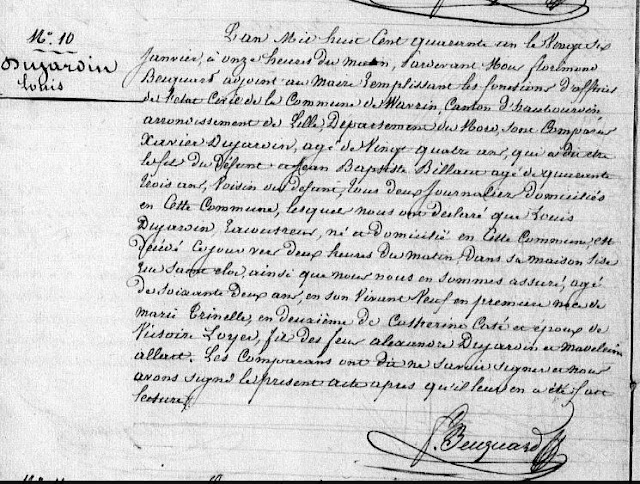 N.º 10
Dujardin
Louis
L'an Mil huit Cent quarante un le Vingt Six
Janvier, à onze heures du matin, pardevant Nous florimond
Beuquard adjoint au Maire remplissant les fonctions d'officier
de l'état Civil de la Commune de Wavrin, Canton d'haubourdin
arrondissement de Lille, Département du Nord, sont Comparus
Xavier Dujardin, agé de Vingt quatre ans, qui a dit être
le fils du Défunt et Jean Baptiste Billaut agé de quarante
trois ans, Voisin du défunt, tous deux Journalier domiciliés
en Cette Commune, lesquel nous ont declaré que Louis
Dujardin, né et domicilié en Cette Commune, est
décédé Ce jour vers deux heures du matin, dans sa maison sise
rue saint eloi, ainsi que nous nous en sommes assuré, agé
de soixante deux ans, en son Vivant Veuf en premiere noce de
marie Trinelle, en deuxième de Catherine Casé et époux de
Victoire Loyer, fils des feu alexandre Dujardin et Madeleine
allart. Les Comparans ont dit ne savoir signer et nous
avons signé le présent acte apres qu'il leur en a été fait
lecture.
f. Beuquard